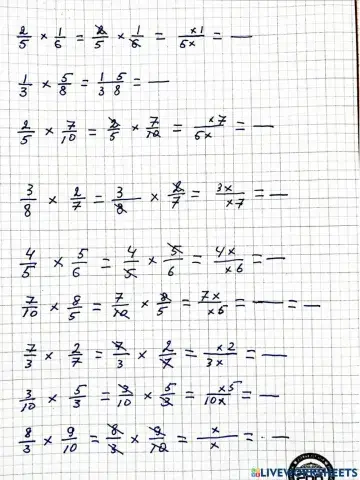 2/5 × 1/6 = 2/5 × 1/6 = ×1/6× = —
1/3 × 5/8 = 1/3 5/8 = —
2/5 × 7/10 = 2/5 × 7/10 = ×7/6× = —
3/8 × 2/7 = 3/8 × 2/7 = 3×/×7 = —
4/5 × 5/6 = 4/5 × 5/6 = 4×/×6 = —
7/10 × 8/5 = 7/10 × 8/5 = 7×/×5 = — = —
7/3 × 2/7 = 7/3 × 2/7 = ×2/3× = —
3/10 × 5/3 = 3/10 × 5/3 = ×5/10× = —
8/3 × 9/10 = 8/3 × 9/10 = ×/× = —
LIVEWORKSHEETS